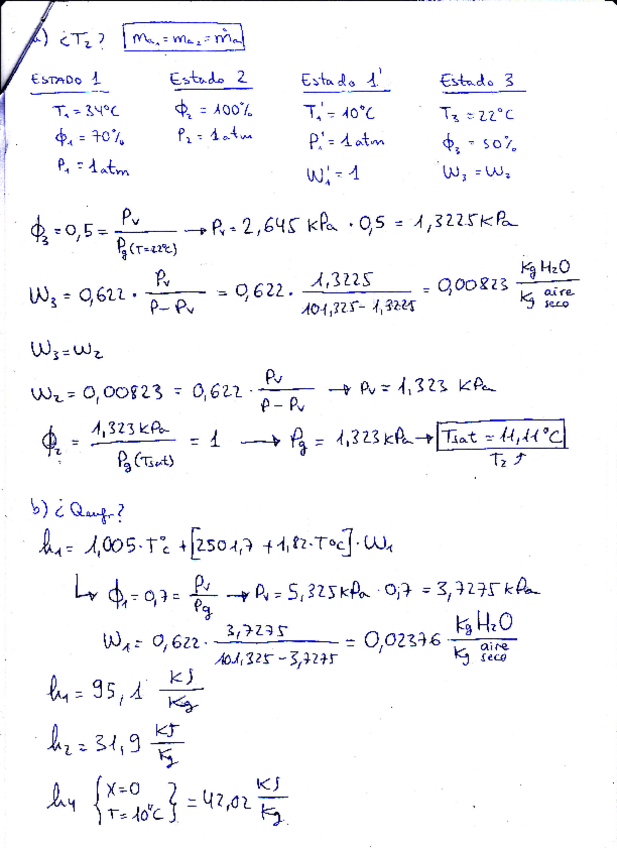 a) ¿T₂? ṁa₁ = ṁa₂ = ṁa
ESTADO 1 Estado 2 Estado 1' Estado 3
T₁ = 34ºC ϕ₂ = 100% T₁' = 10ºC T₃ = 22ºC
ϕ₁ = 70% P₂ = 1 atm P₁' = 1 atm ϕ₃ = 50%
P₁ = 1 atm W₁' = 1 W₃ = W₂
ϕ₃ = 0,5 = Pv / Pg (T=22ºC) → Pv = 2,645 kPa · 0,5 = 1,3225 kPa
W₃ = 0,622 · Pv / (P - Pv) = 0,622 · 1,3225 / (101,325 - 1,3225) = 0,00823 Kg H₂O / Kg aire seco
W₃ = W₂
W₂ = 0,00823 = 0,622 · Pv / (P - Pv) → Pv = 1,323 kPa
ϕ₂ = 1,323 kPa / Pg (Tsat) = 1 → Pg = 1,323 kPa → Tsat = 11,11ºC
T₂ ↑
b) ¿Qenfr?
h₁ = 1,005 · TºC + [2501,7 + 1,82 · TºC] · W₁
↳ ϕ₁ = 0,7 = Pv / Pg → Pv = 5,325 kPa · 0,7 = 3,7275 kPa
W₁ = 0,622 · 3,7275 / (101,325 - 3,7275) = 0,02376 Kg H₂O / Kg aire seco
h₁ = 95,1 KJ / Kg
h₂ = 31,9 KJ / Kg
h₄ { X=0 T=10ºC } = 42,02 KJ / Kg